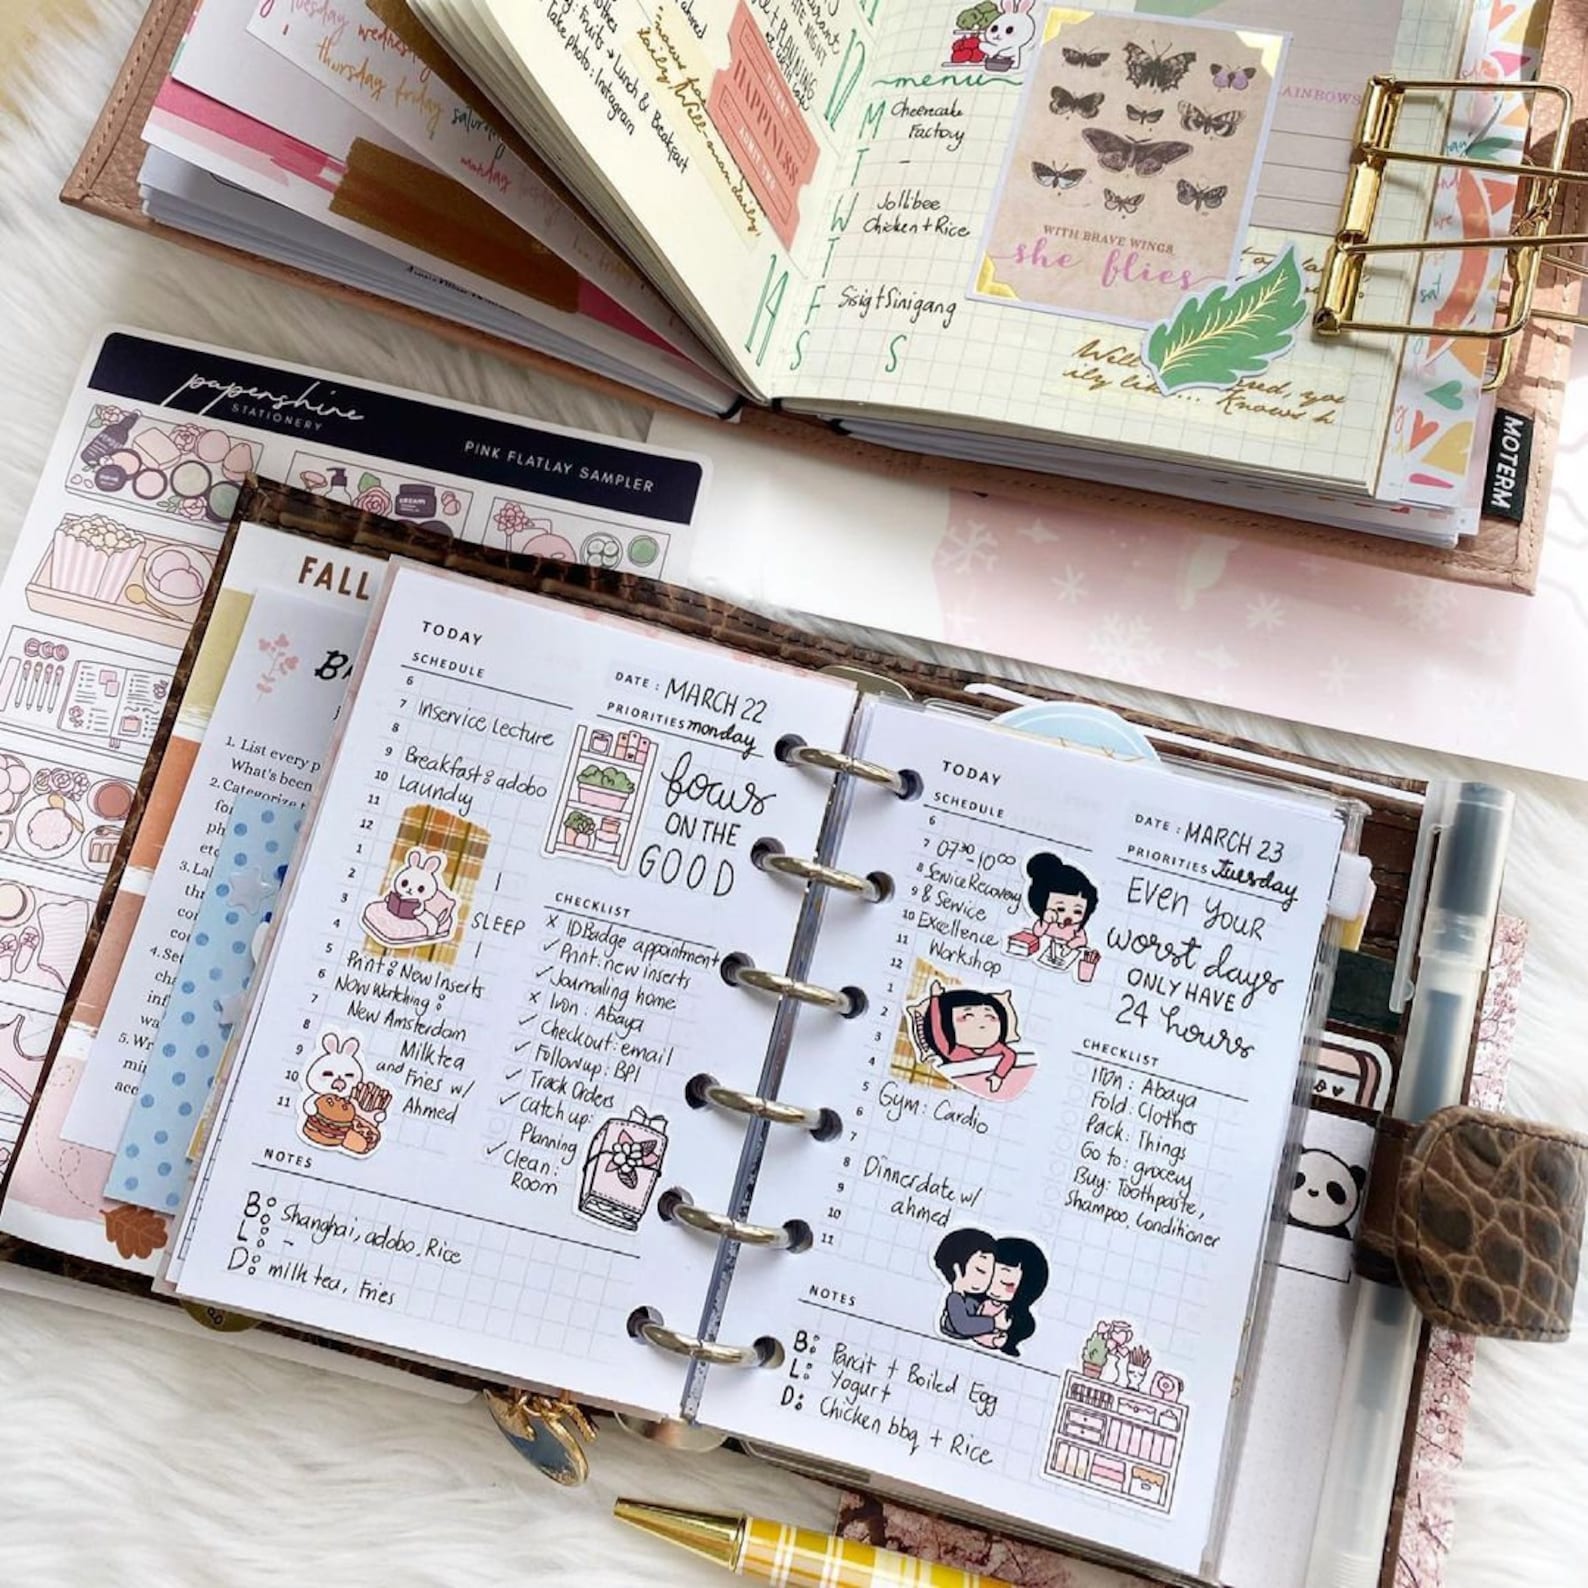 tuesday wednesday
thursday friday
saturday
monday
fruits → Lunch & Breakfast
Take photo: Instagram
HAPPINESS
14
menu
M
T
W
T
F
S
S
Cheesecake
Factory
-
Jollibee
Chicken + Rice
Sisig + Sinigang
WITH BRAVE WINGS
she flies
RAINBOWS
MOTERM
papershire
STATIONERY
PINK FLATLAY SAMPLER
CREAM
FALL
1. List every
What's been
2. Categorize
3.
4. Set
5.
TODAY
SCHEDULE
DATE: MARCH 22
PRIORITIES monday
6
7 Inservice Lecture
8
9 Breakfast: adobo
10 Laundry
11
12
1
2
3 SLEEP
4
5 Print: New Inserts
6 Now Watching:
7 New Amsterdam
8 Milktea
9 and Fries w/
10 Ahmed
11
focus
ON THE
GOOD
CHECKLIST
x ID Badge appointment
✓ Print: new inserts
✓ Journaling home
x Iron: Abaya
✓ Checkout: email
✓ Followup: BPI
✓ Track Orders
✓ Catch up:
Planning
✓ Clean:
Room
NOTES
B: Shanghai, adobo, Rice
L: -
D: milk tea, Fries
TODAY
SCHEDULE
DATE: MARCH 23
PRIORITIES Tuesday
6
7 07 30-10 00
8 Service Recovery
9 & Service
10 Excellence
11 Workshop
12
1
2
3
4
5 Gym: Cardio
6
7
8 Dinner date w/
9 ahmed
10
11
EVEN YOUR
worst days
ONLY HAVE
24 hours
CHECKLIST
Iron: Abaya
Fold: Clothes
Pack: Things
Go to: grocery
Buy: Toothpaste,
Shampoo, Conditioner
NOTES
B: Pancit + Boiled Egg
L: Yogurt
D: Chicken bbq + Rice